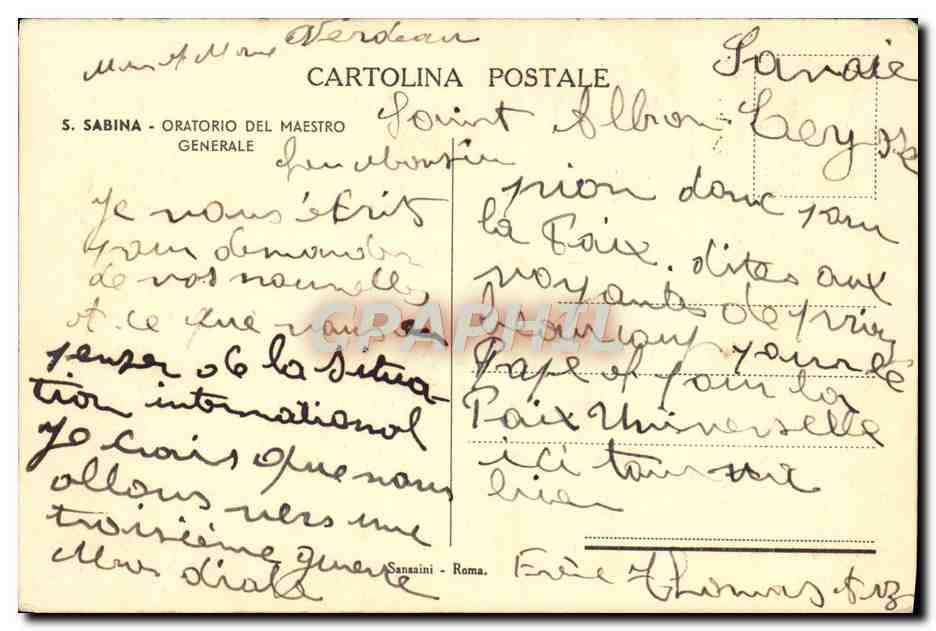 Mr et Mme Verdeau
Savoie
CARTOLINA POSTALE
Saint Alban Leysse
S. SABINA - ORATORIO DEL MAESTRO
GENERALE
Cher Monsieur
Je vous écrit
pour demander
de vos nouvelles
et ce que vous en
penser de la situa-
tion international
Je crois que nous
allons vers une
troisième guerre
Mondiale
prion donc pour
la Paix. dites aux
voyants de prier
beaucoup pour le
Pape et pour la
Paix Universelle
ici tout va
bien
Frère Thomas
Sansaini - Roma.
CPAPHIL